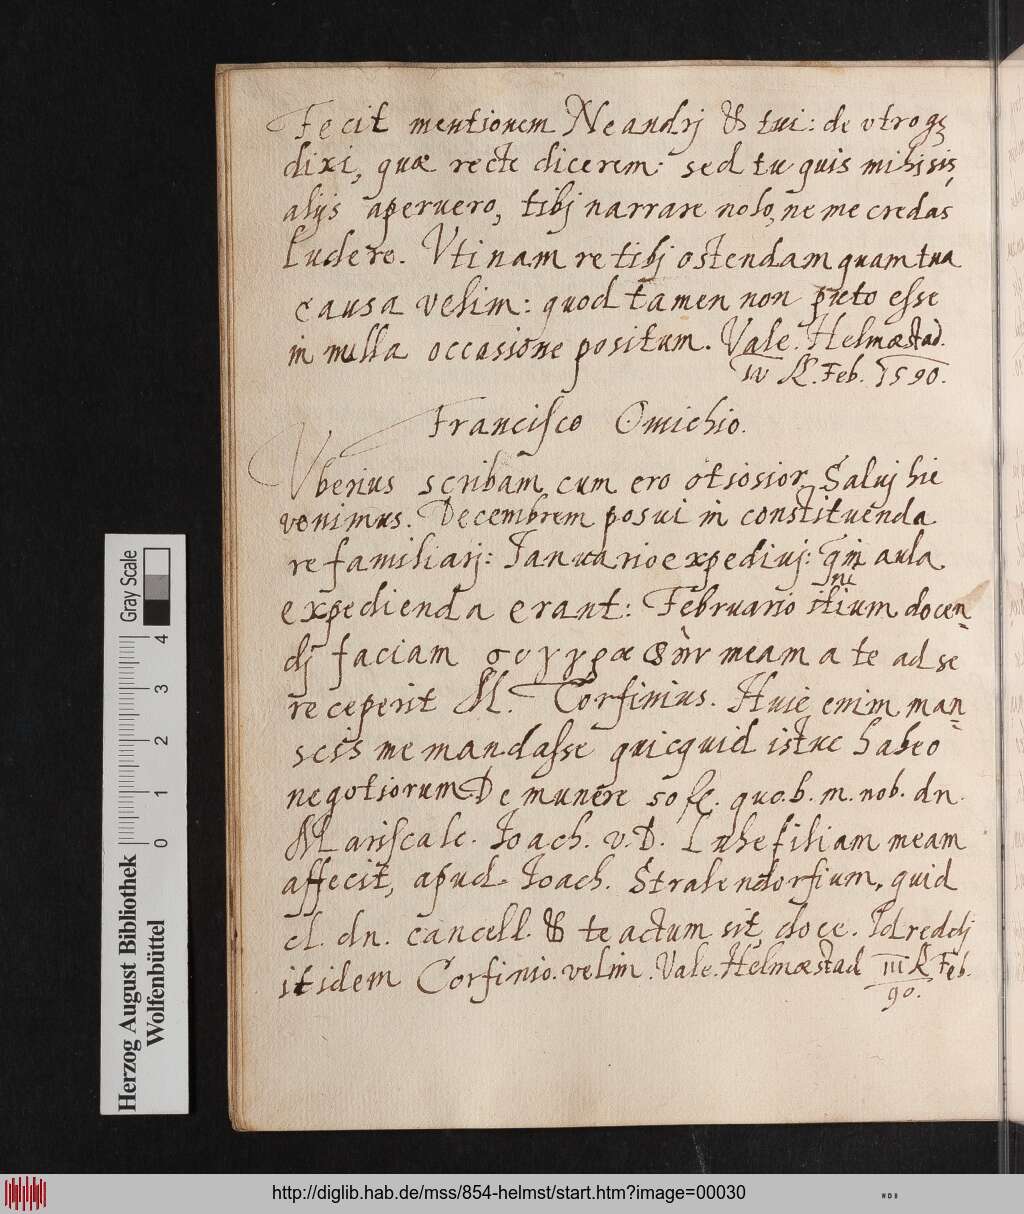 Fecit mentionem Neandrj & tui: de vtroqꝫ
dixi, quæ recte dicerem: sed tu quis mihj sis,
alijs aperuero, tibj narrare nolo, ne me credas
ludere. Vtinam re tibj ostendam quam tua
causa velim: quod tamen non puto esse
in nulla occasione positum. Vale. Helmæstad.
IV K. Feb. 1590.
Francisco Omichio.
Vberius scribam cum ero otiosior. Saluj hic
venimus. Decembrem posui in constituenda
re familiarj: Ianuario expediuj: in aula
expedienda erant: Februario initium docen=
dj faciam meam a te ad se
receperit M. Corfinius. Huic enim man=
scis me mandasse quicquid istuc habeo
negotiorum De munere quo. b. m. nob. dn.
Mariscalc. Joach. v. D. Luhe filiam meam
affecit, apud. Joach. Stralendorfium, quid
cl. dn. cancell. & te actum sit, doce. Id reddj
itidem Corfinio velim. Vale. Helmæstad III K Feb.
90.
Gray Scale
4
3
2
1
0
Herzog August Bibliothek
Wolfenbüttel
http://diglib.hab.de/mss/854-helmst/start.htm?image=00030